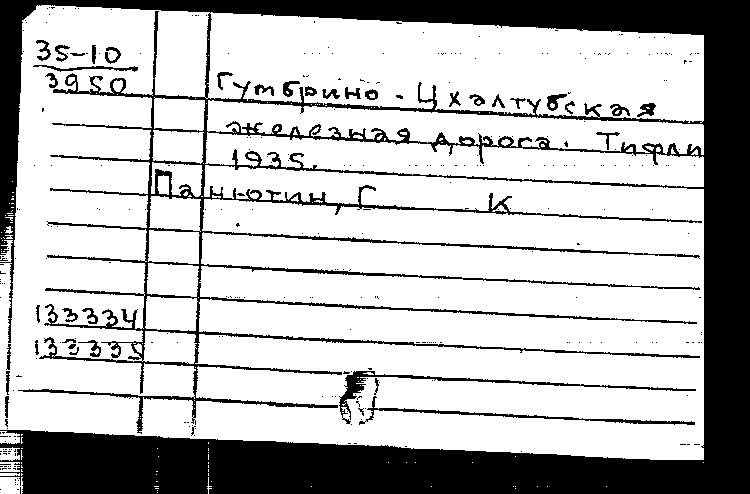 35-10
3950
Гумбрино - Цхалтубская
железная дорога. Тифли
1935.
Панютин, Г К
133334
133335